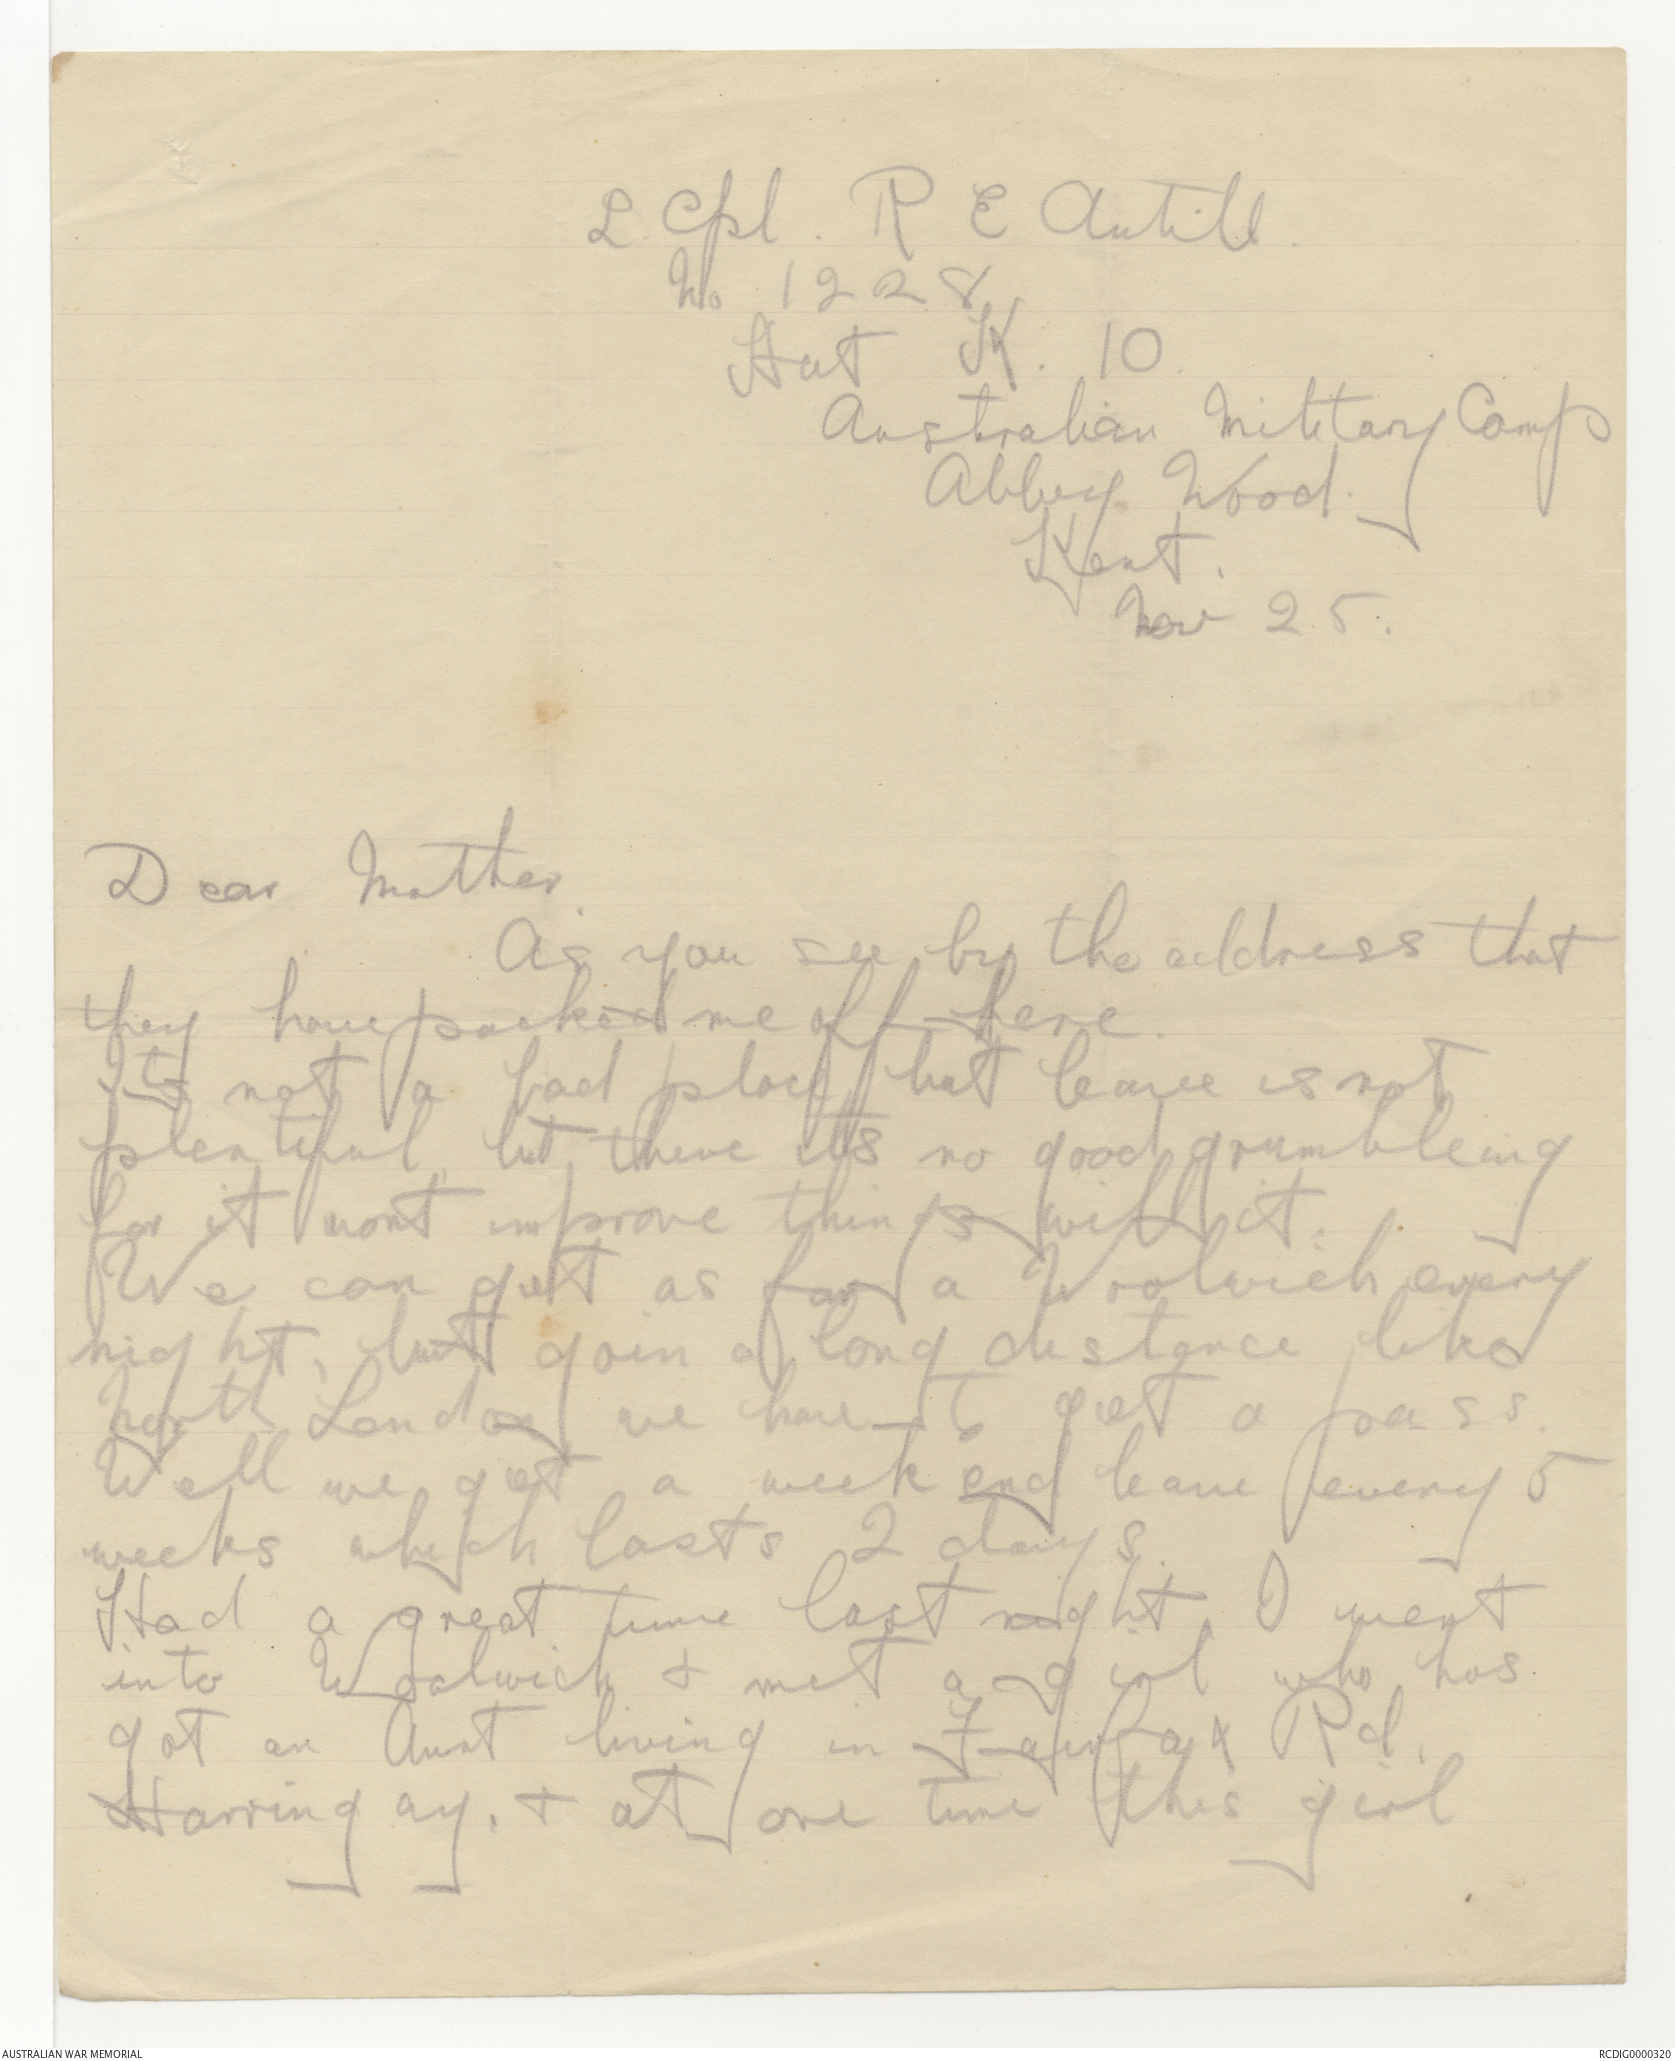 L. Cpl. R E Antill.
No 1228
Hut K. 10.
Australian Military Camp
Abbey Wood.
Kent.
Nov 25.
Dear Mother.
As you see by the address that
they have packed me off here.
It's not a bad place, but leave is not
plentiful, but there it's no good grumbleing
for it wont improve things will it.
We can get as far a Woolwich every
night, but goin a long distance like
North London we have to get a pass.
Well we get a week end leave every 5
weeks which lasts 2 days.
Had a great time last night, I went
into Woolwich & met a girl who has
got an Aunt living in Fairfax Rd.
Harringay. & at one time this girl
AUSTRALIAN WAR MEMORIAL
RCDIG0000320